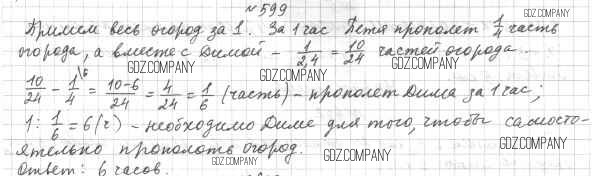 № 599
Примем весь огород за 1. За 1 час Петя прополет 1/4 часть
огорода, а вместе с Димой - 1/2,4 = 10/24 частей огорода.
GDZ.COMPANY GDZ.COMPANY
GDZ.COMPANY
10/24 - 1/4 \6 = 10-6/24 = 4/24 = 1/6 (часть) - прополет Дима за 1 час;
1 : 1/6 = 6 (ч) - необходимо Диме для того, чтобы самосто-
ятельно прополоть огород.
GDZ.COMPANY GDZ.COMPANY
Ответ: 6 часов.
GDZ.COMPANY